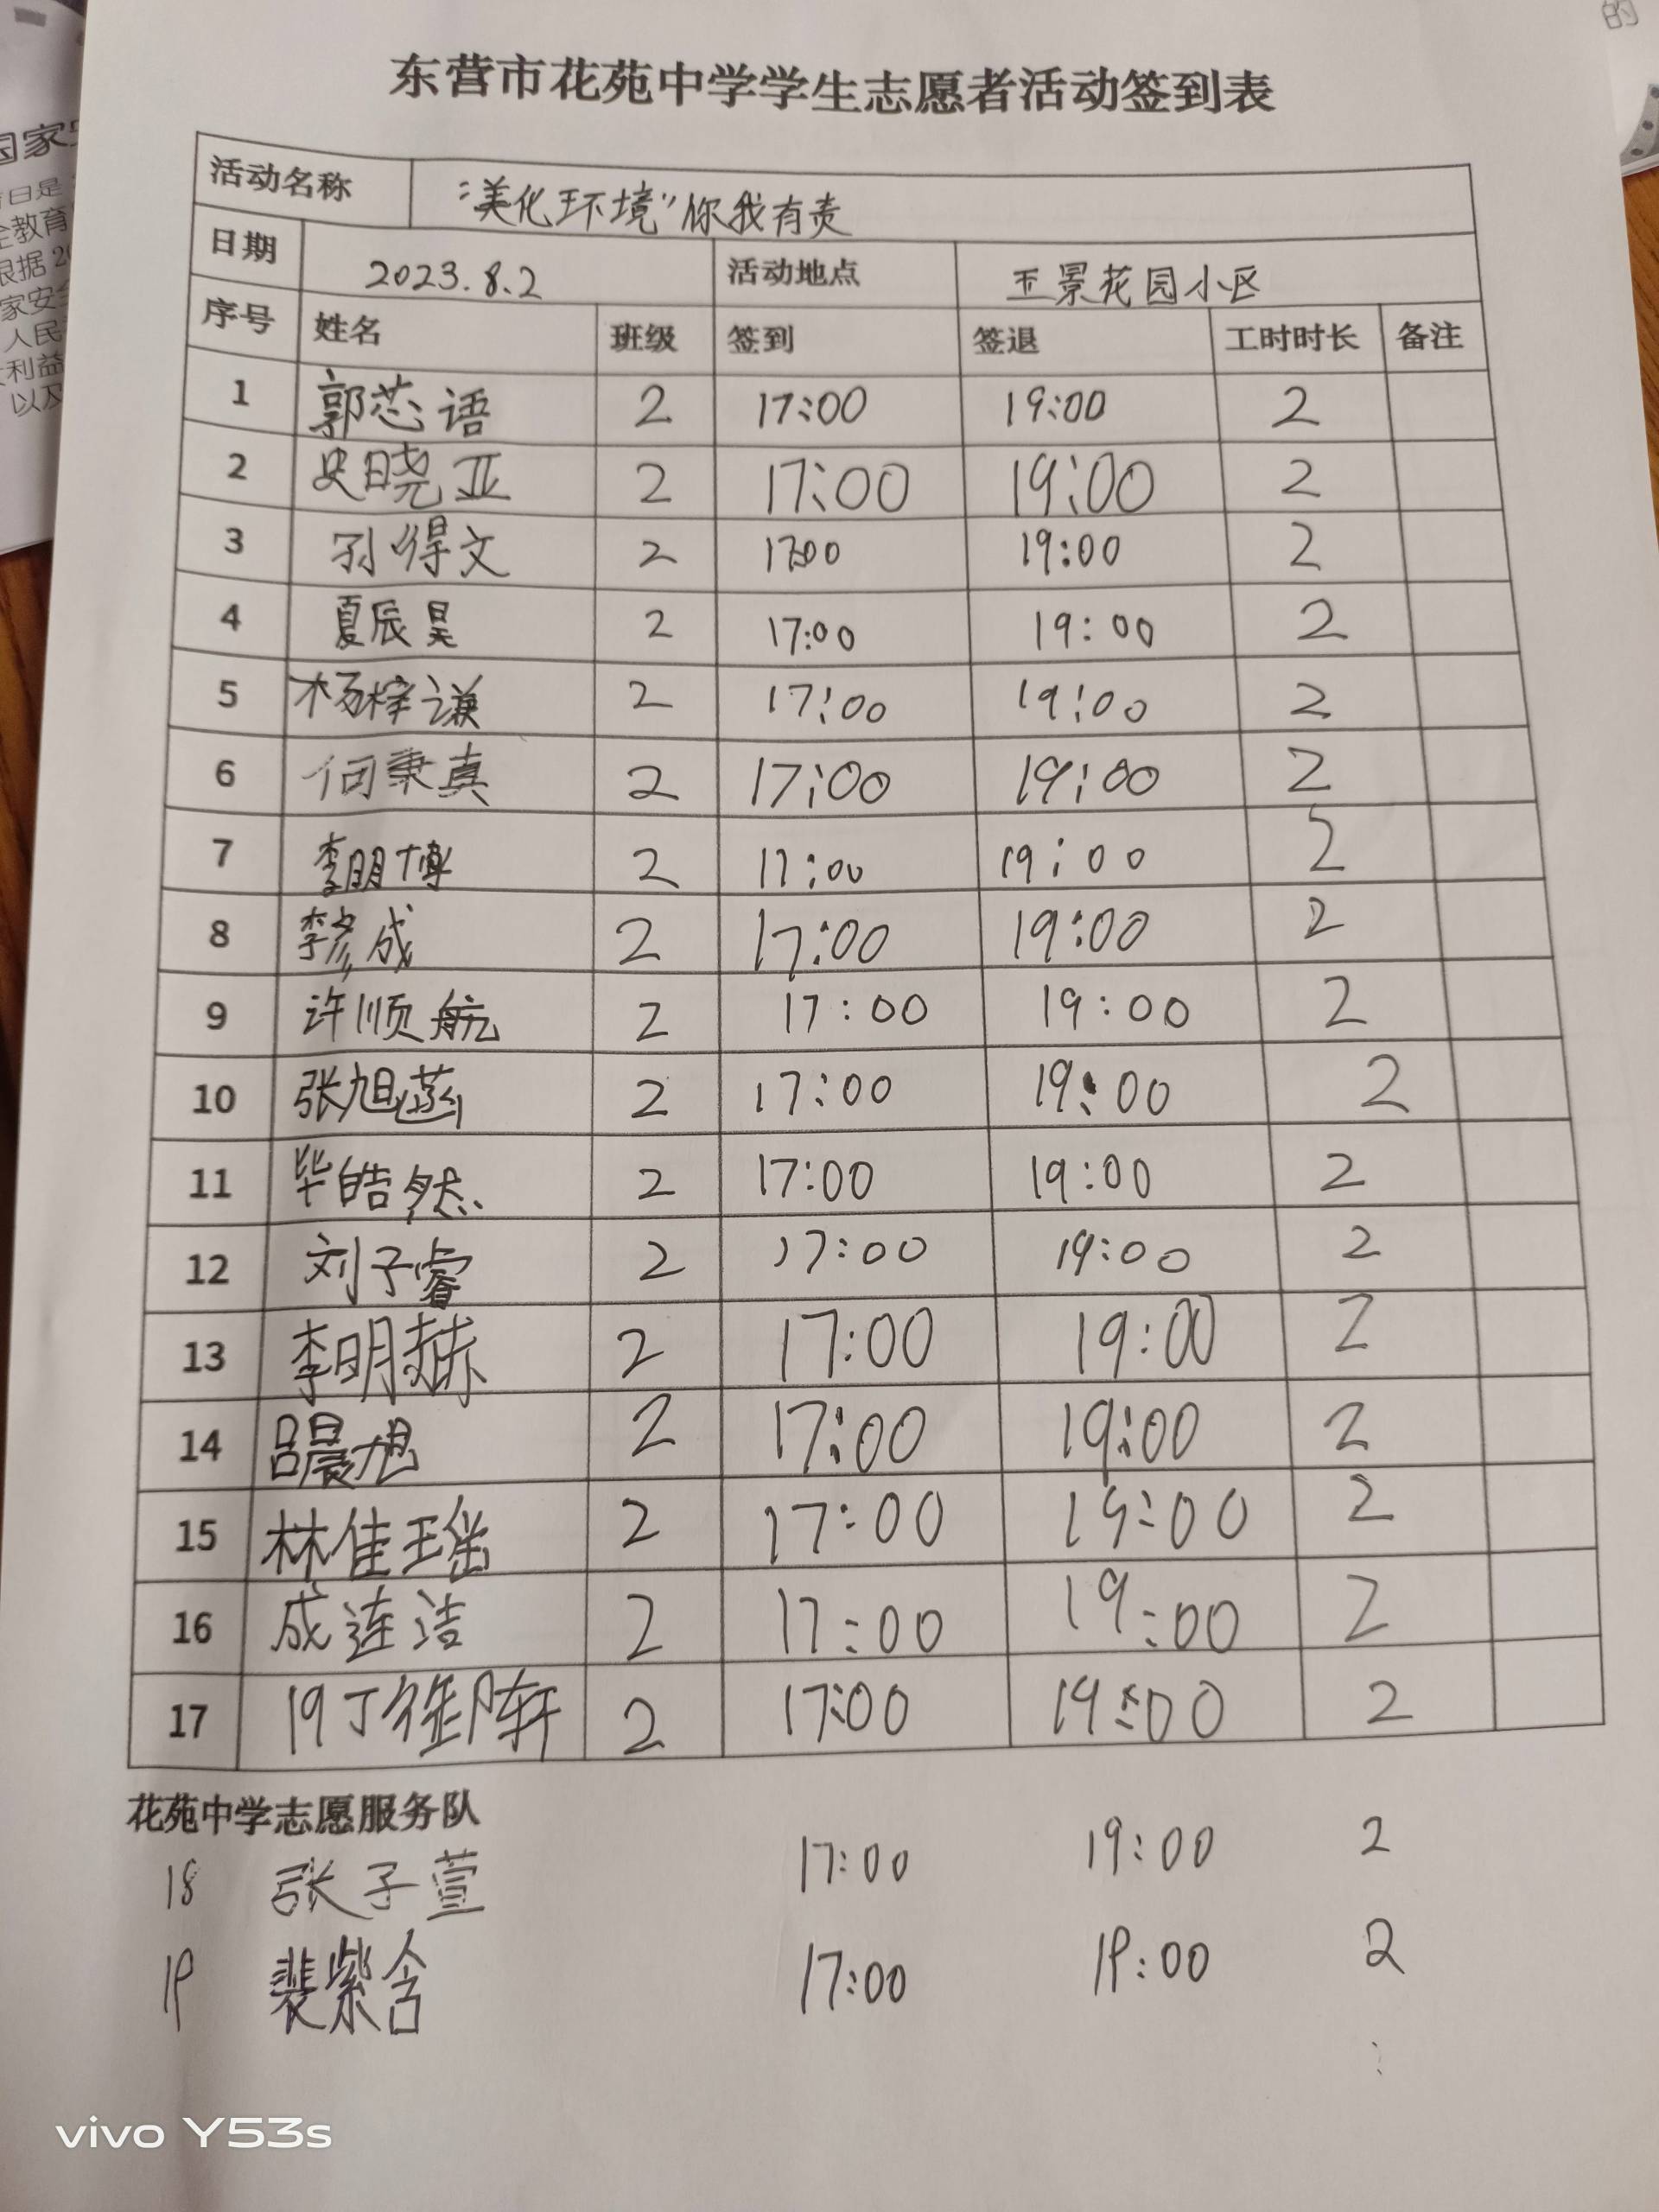 东营市花苑中学学生志愿者活动签到表
活动名称 “美化环境”你我有责
日期 2023.8.2 活动地点 玉景花园小区
序号 姓名 班级 签到 签退 工时时长 备注
1 郭芯语 2 17:00 19:00 2
2 史晓亚 2 17:00 19:00 2
3 孙得文 2 17:00 19:00 2
4 夏辰昊 2 17:00 19:00 2
5 杨梓谦 2 17:00 19:00 2
6 何秉真 2 17:00 19:00 2
7 李明博 2 17:00 19:00 2
8 李彦成 2 17:00 19:00 2
9 许顺航 2 17:00 19:00 2
10 张旭涵 2 17:00 19:00 2
11 毕皓然 2 17:00 19:00 2
12 刘子睿 2 17:00 19:00 2
13 李明赫 2 17:00 19:00 2
14 吕晨旭 2 17:00 19:00 2
15 林佳瑶 2 17:00 19:00 2
16 成连洁 2 17:00 19:00 2
17 2 17:00 19:00 2
花苑中学志愿服务队
18 张子萱 17:00 19:00 2
19 裴紫含 17:00 19:00 2
vivo Y53s
国家
日是
全教育
根据 20
家安全
人民
利益
以及
的